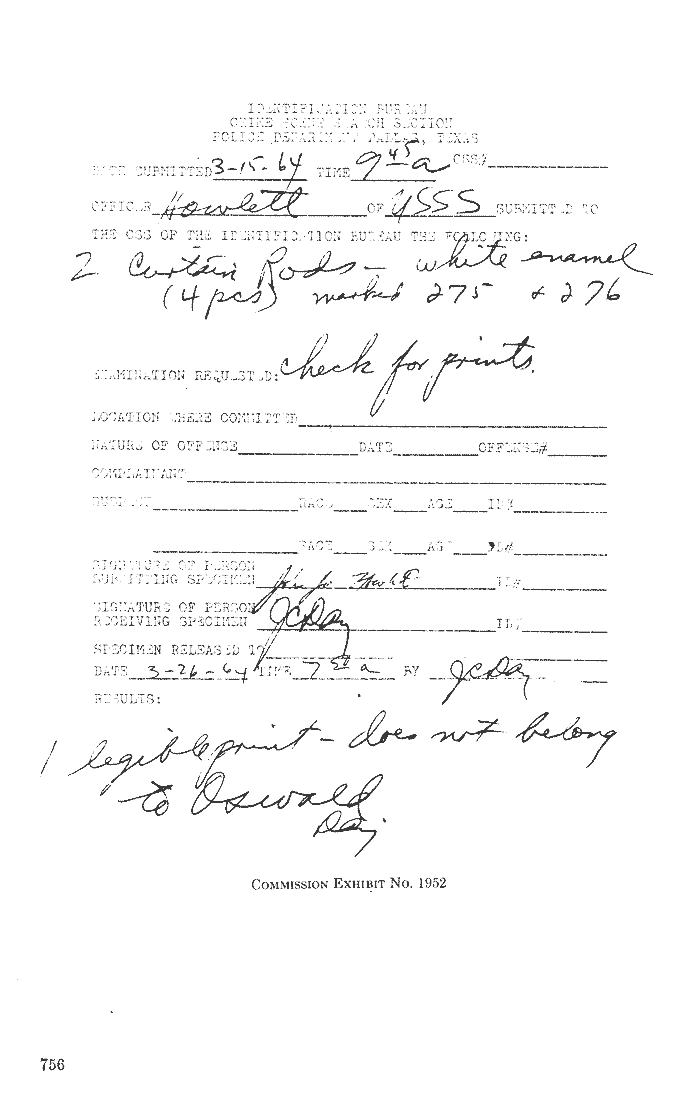 IDENTIFICATION BUREAU
CRIME SCENE SEARCH SECTION
POLICE DEPARTMENT DALLAS, TEXAS
DATE SUBMITTED 3-15-64 TIME 9 45 a CSS#
OFFICER Howlett OF USSS SUBMITTED TO
THE CSS OF THE IDENTIFICATION BUREAU THE FOLLOWING:
2 Curtain Rods - white enamel
(4 pcs) marked 275 & 276
EXAMINATION REQUESTED: check for prints.
LOCATION WHERE COMMITTED
NATURE OF OFFENSE DATE OFFENSE#
COMPLAINANT
SUSPECT RACE SEX AGE ID#
RACE SEX AGE ID#
SIGNATURE OF PERSON
SUBMITTING SPECIMEN John Joe Howlett ID#
SIGNATURE OF PERSON
RECEIVING SPECIMEN JCDay ID#
SPECIMEN RELEASED TO
DATE 3-26-64 TIME 7 50 a BY JCDay
RESULTS:
1 legible print - does not belong
to Oswald
Day
COMMISSION EXHIBIT NO. 1952
756